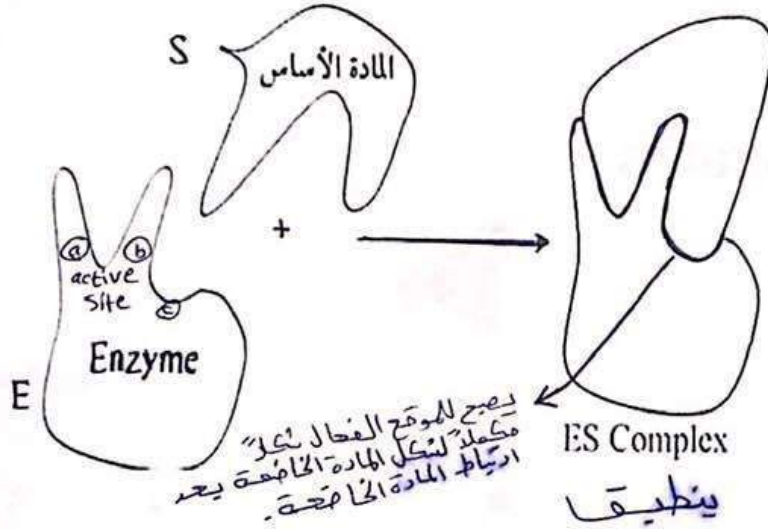 S
المادة الأساس
+
a
b
active
site
c
Enzyme
E
يصبح للموقع الفعال شكلاً
مكملاً لشكل المادة الخاضعة بعد
ارتباط المادة الخاضعة.
ES Complex
ينطبقا